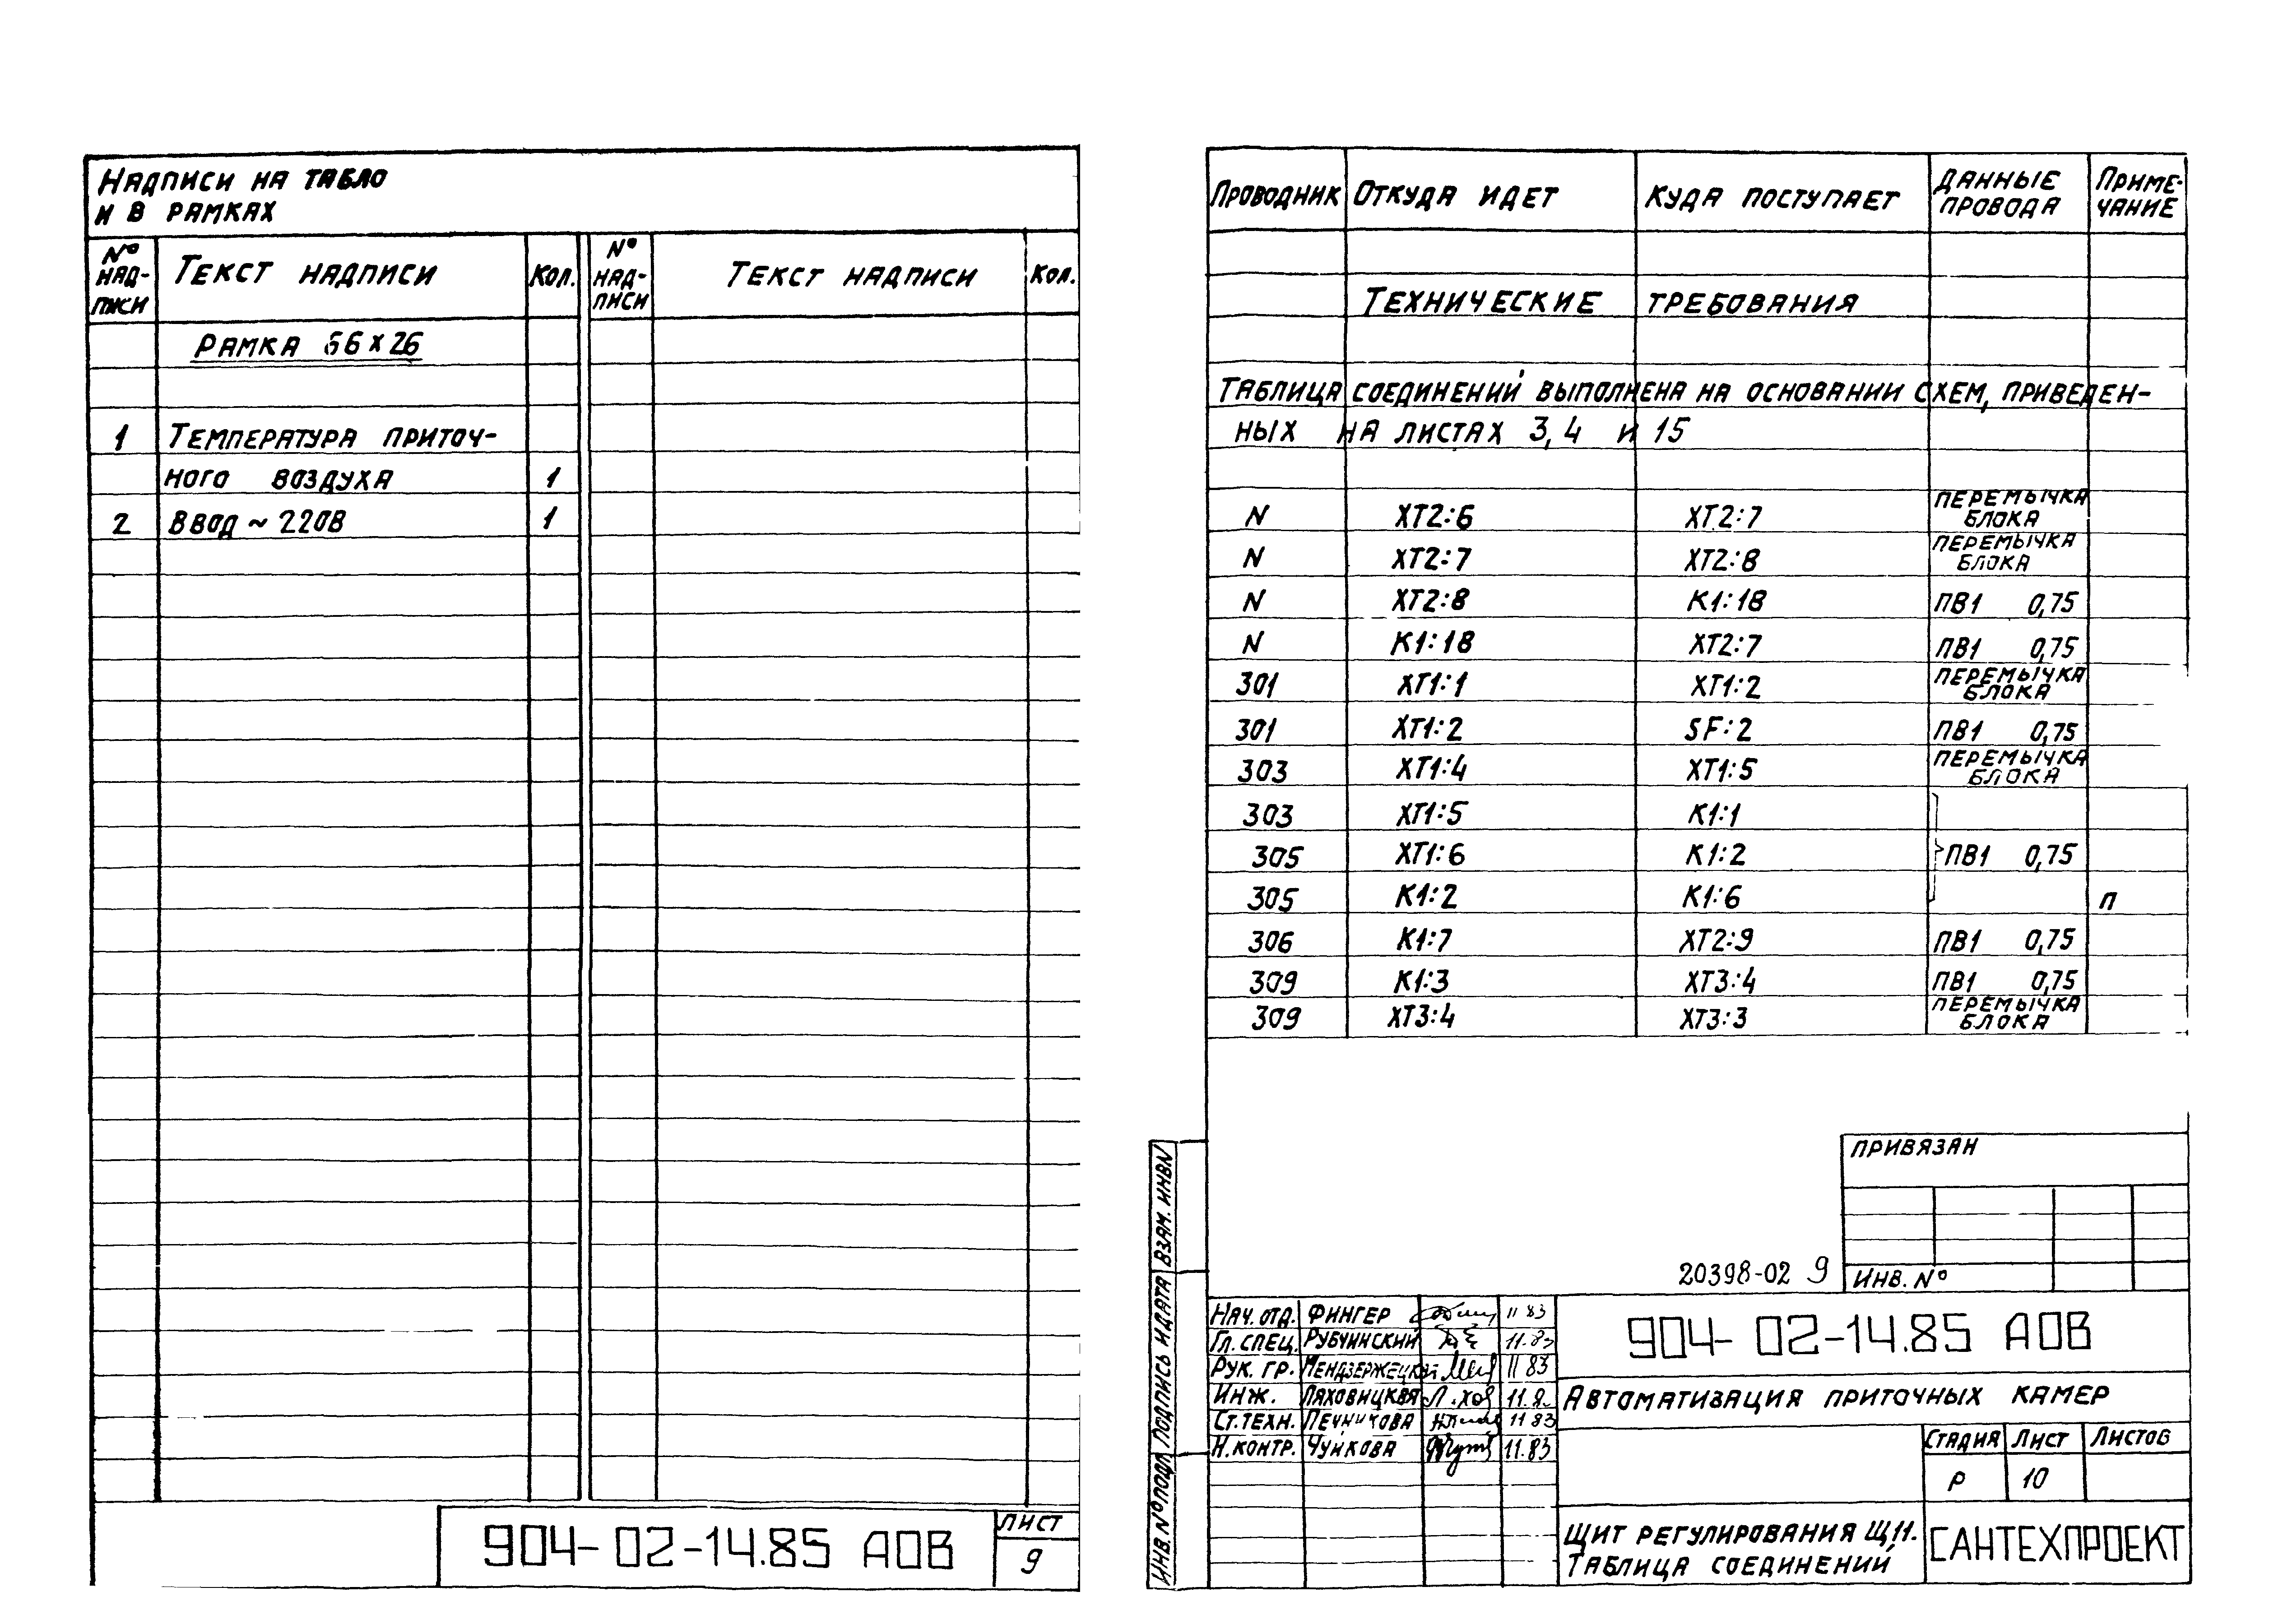 Надписи на табло
и в рамках
№ надписи Текст надписи Кол. № надписи Текст надписи Кол.
Рамка 66×26
1 Температура приточ-
ного воздуха 1
2 Ввод ~ 220В 1
904-02-14.85 АОВ
Лист
9
Проводник Откуда идет Куда поступает Данные провода Приме-чание
Технические требования
Таблица соединений выполнена на основании схем, приведен-
ных на листах 3,4 и 15
N ХТ2:6 ХТ2:7 перемычка блока
N ХТ2:7 ХТ2:8 перемычка блока
N ХТ2:8 К1:18 ПВ1 0,75
N К1:18 ХТ2:7 ПВ1 0,75
301 ХТ1:1 ХТ1:2 перемычка блока
301 ХТ1:2 SF:2 ПВ1 0,75
303 ХТ1:4 ХТ1:5 перемычка блока
303 ХТ1:5 К1:1
305 ХТ1:6 К1:2 ПВ1 0,75
305 К1:2 К1:6 п
306 К1:7 ХТ2:9 ПВ1 0,75
309 К1:3 ХТ3:4 ПВ1 0,75
309 ХТ3:4 ХТ3:3 перемычка блока
Привязан
Инв. №
20398-02 9
Взам. инв N
Подпись и дата
Инв. № подл
Нач. отд. Фингер 11 83
Гл. спец. Рубчинский 11.83
Рук. гр. 11 83
Инж. Ляховицкая
Ст. техн. Печникова 11 83
Н. контр. Чуйкова 11.83
904-02-14.85 АОВ
Автоматизация приточных камер
Стадия Лист Листов
Р 10
Щит регулирования Щ11.
Таблица соединений
САНТЕХПРОЕКТ